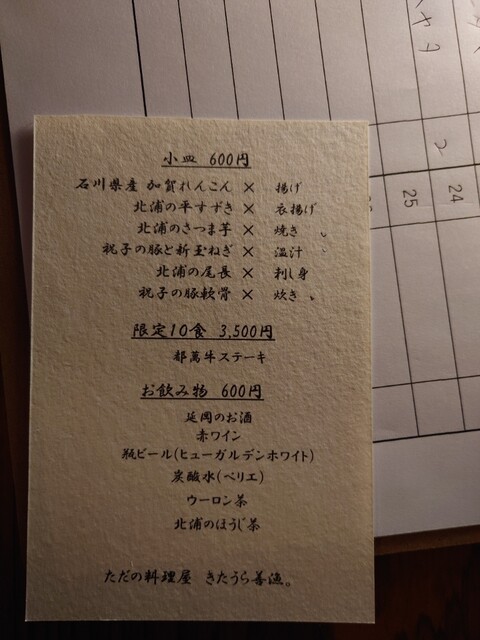 小皿 600円
石川県産 加賀れんこん × 揚げ
北浦の平すずき × 衣揚げ
北浦のさつま芋 × 焼き
祝子の豚と新玉ねぎ × 温汁
北浦の尾長 × 刺し身
祝子の豚軟骨 × 炊き
限定10食 3,500円
都萬牛ステーキ
お飲み物 600円
延岡のお酒
赤ワイン
瓶ビール(ヒューガルデンホワイト)
炭酸水(ペリエ)
ウーロン茶
北浦のほうじ茶
ただの料理屋 きたうら善漁。
24
25